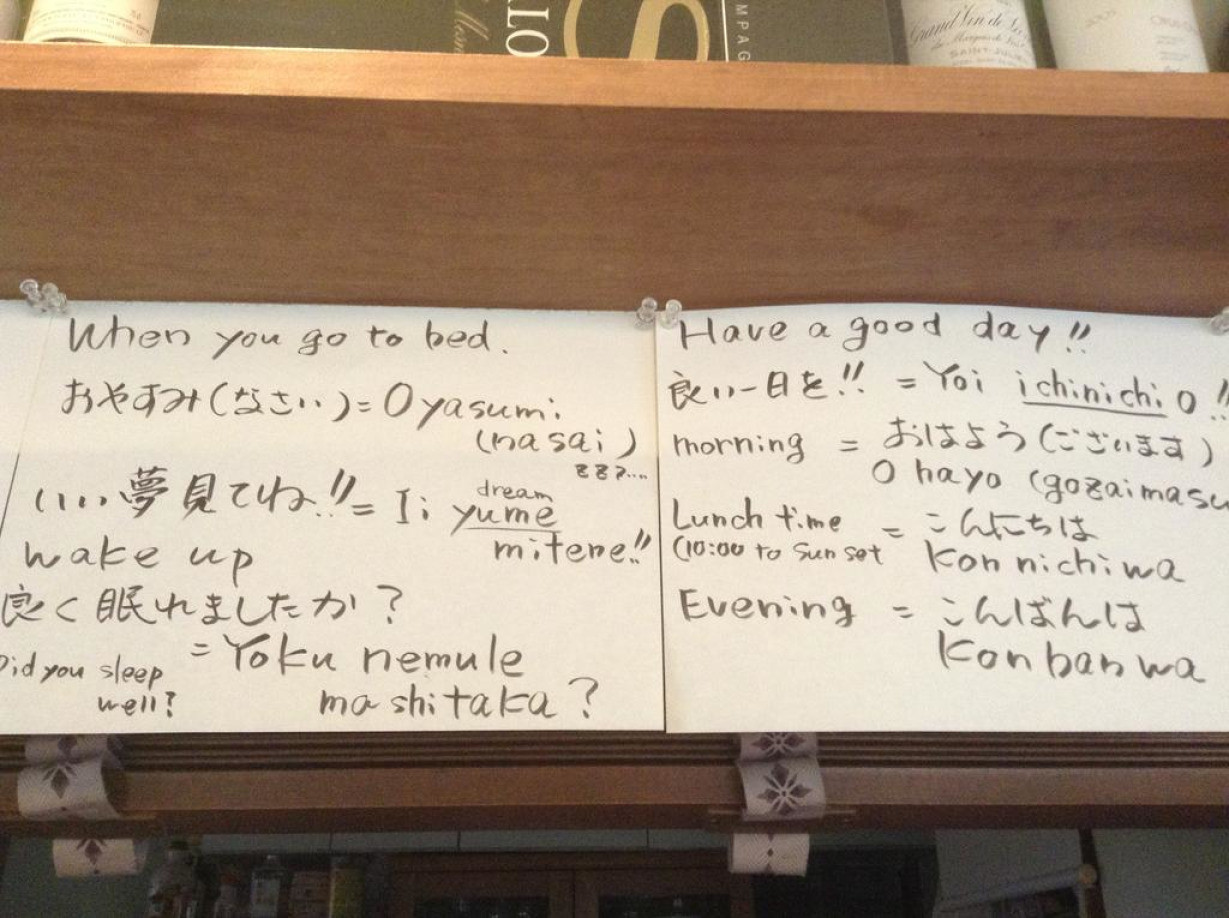 MPAG
Grand Vin de
SAINT-JULIEN
When you go to bed.
おやすみ(なさい)=Oyasumi
(nasai)
zzz....
いい夢見てね!!=Ii yume
dream
mitene!!
wake up
良く眠れましたか?
=Yoku nemule
mashitaka?
Did you sleep
well?
Have a good day!!
良い一日を!!=Yoi ichinichi o!!
morning = おはよう(ございます)
Ohayo (gozaimasu
Lunch time = こんにちは
(10:00 to Sunset Konnichiwa
Evening = こんばんは
Konbanwa